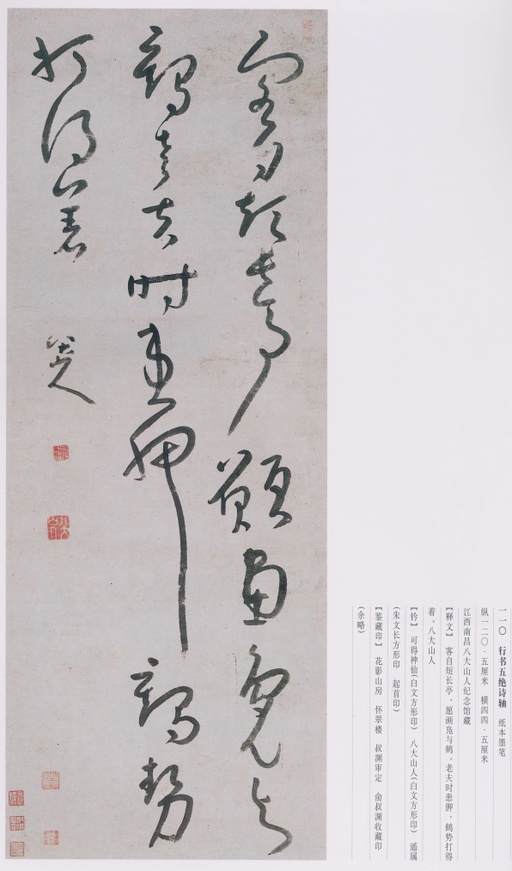 一一〇 行书五绝诗轴 纸本墨笔
纵一二〇·五厘米 横四四·五厘米
江西南昌八大山人纪念馆藏
【释文】 客自短长亭，愿画凫与鹤。老夫时患胛，鹤势打得
着。八大山人
【钤】 可得神仙(白文方形印) 八大山人(白文方形印) 遥属
(朱文长方形印 起首印)
【鉴藏印】 花影山房 怀翠楼 叔渊审定 俞叔渊收藏印
(余略)
客自短長亭願畫鳧与
鶴老夫时患胛鶴勢
打得着
八大山人